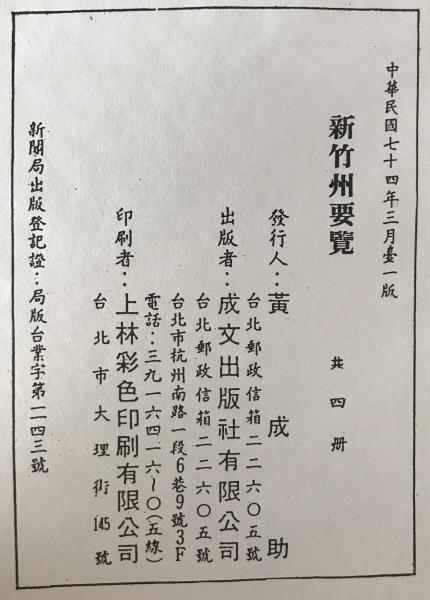 中華民國七十四年三月臺一版
新竹州要覽 共四冊
發行人：黃成助
台北郵政信箱二二六〇五號
出版者：成文出版社有限公司
台北郵政信箱二二六〇五號
台北市杭州南路一段6巷9號3F
電話：三九一六四一六～〇(五線)
印刷者：上林彩色印刷有限公司
台北市大理街145號
新聞局出版登記證：局版台業字第一一四三號